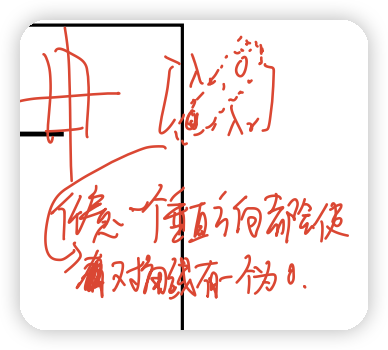 λ₁ 0
0 λ₂
任意一个垂直方向都会使
对角线有一个为0.